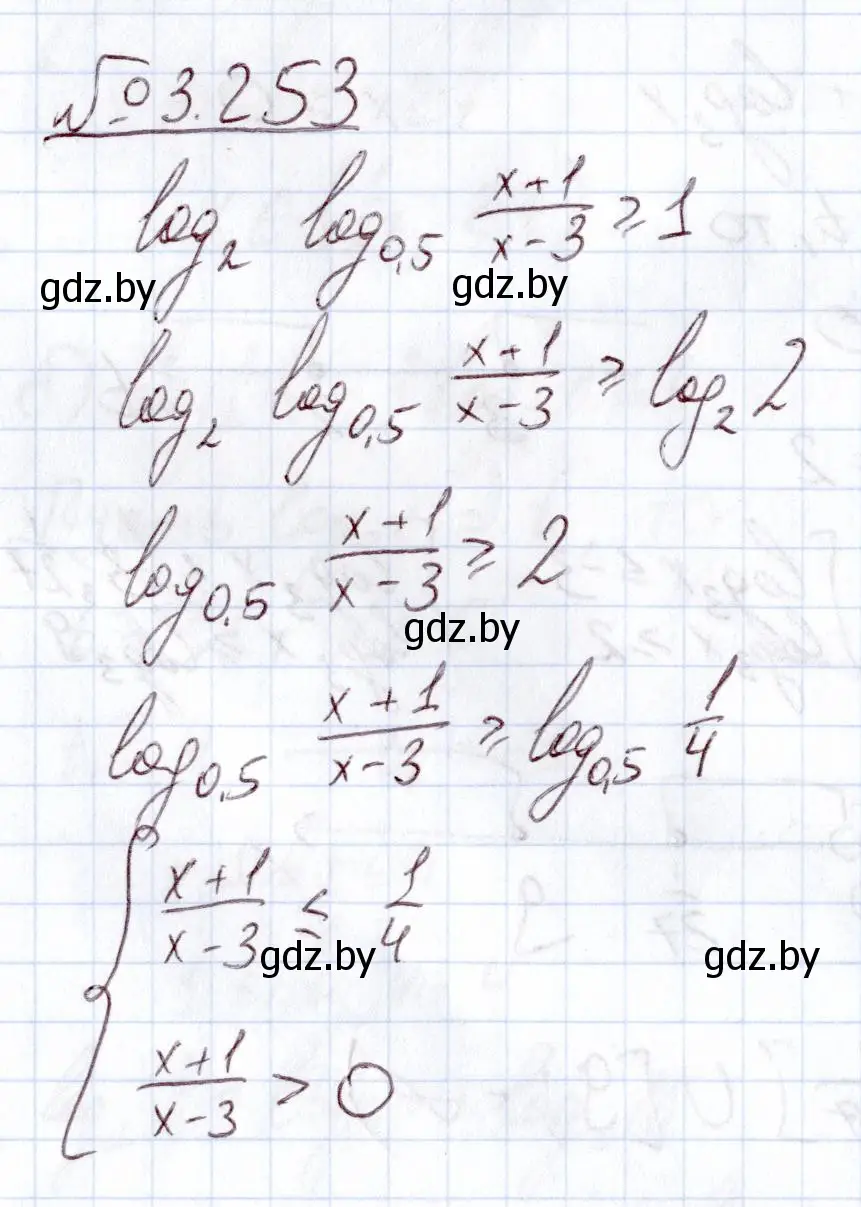 №3.253
log₂ log₀,₅ (x+1)/(x-3) ≥ 1
gdz.by gdz.by
log₂ log₀,₅ (x+1)/(x-3) ≥ log₂ 2
log₀,₅ (x+1)/(x-3) ≥ 2
gdz.by
log₀,₅ (x+1)/(x-3) ≥ log₀,₅ 1/4
{ (x+1)/(x-3) ≤ 1/4
gdz.by gdz.by
(x+1)/(x-3) > 0